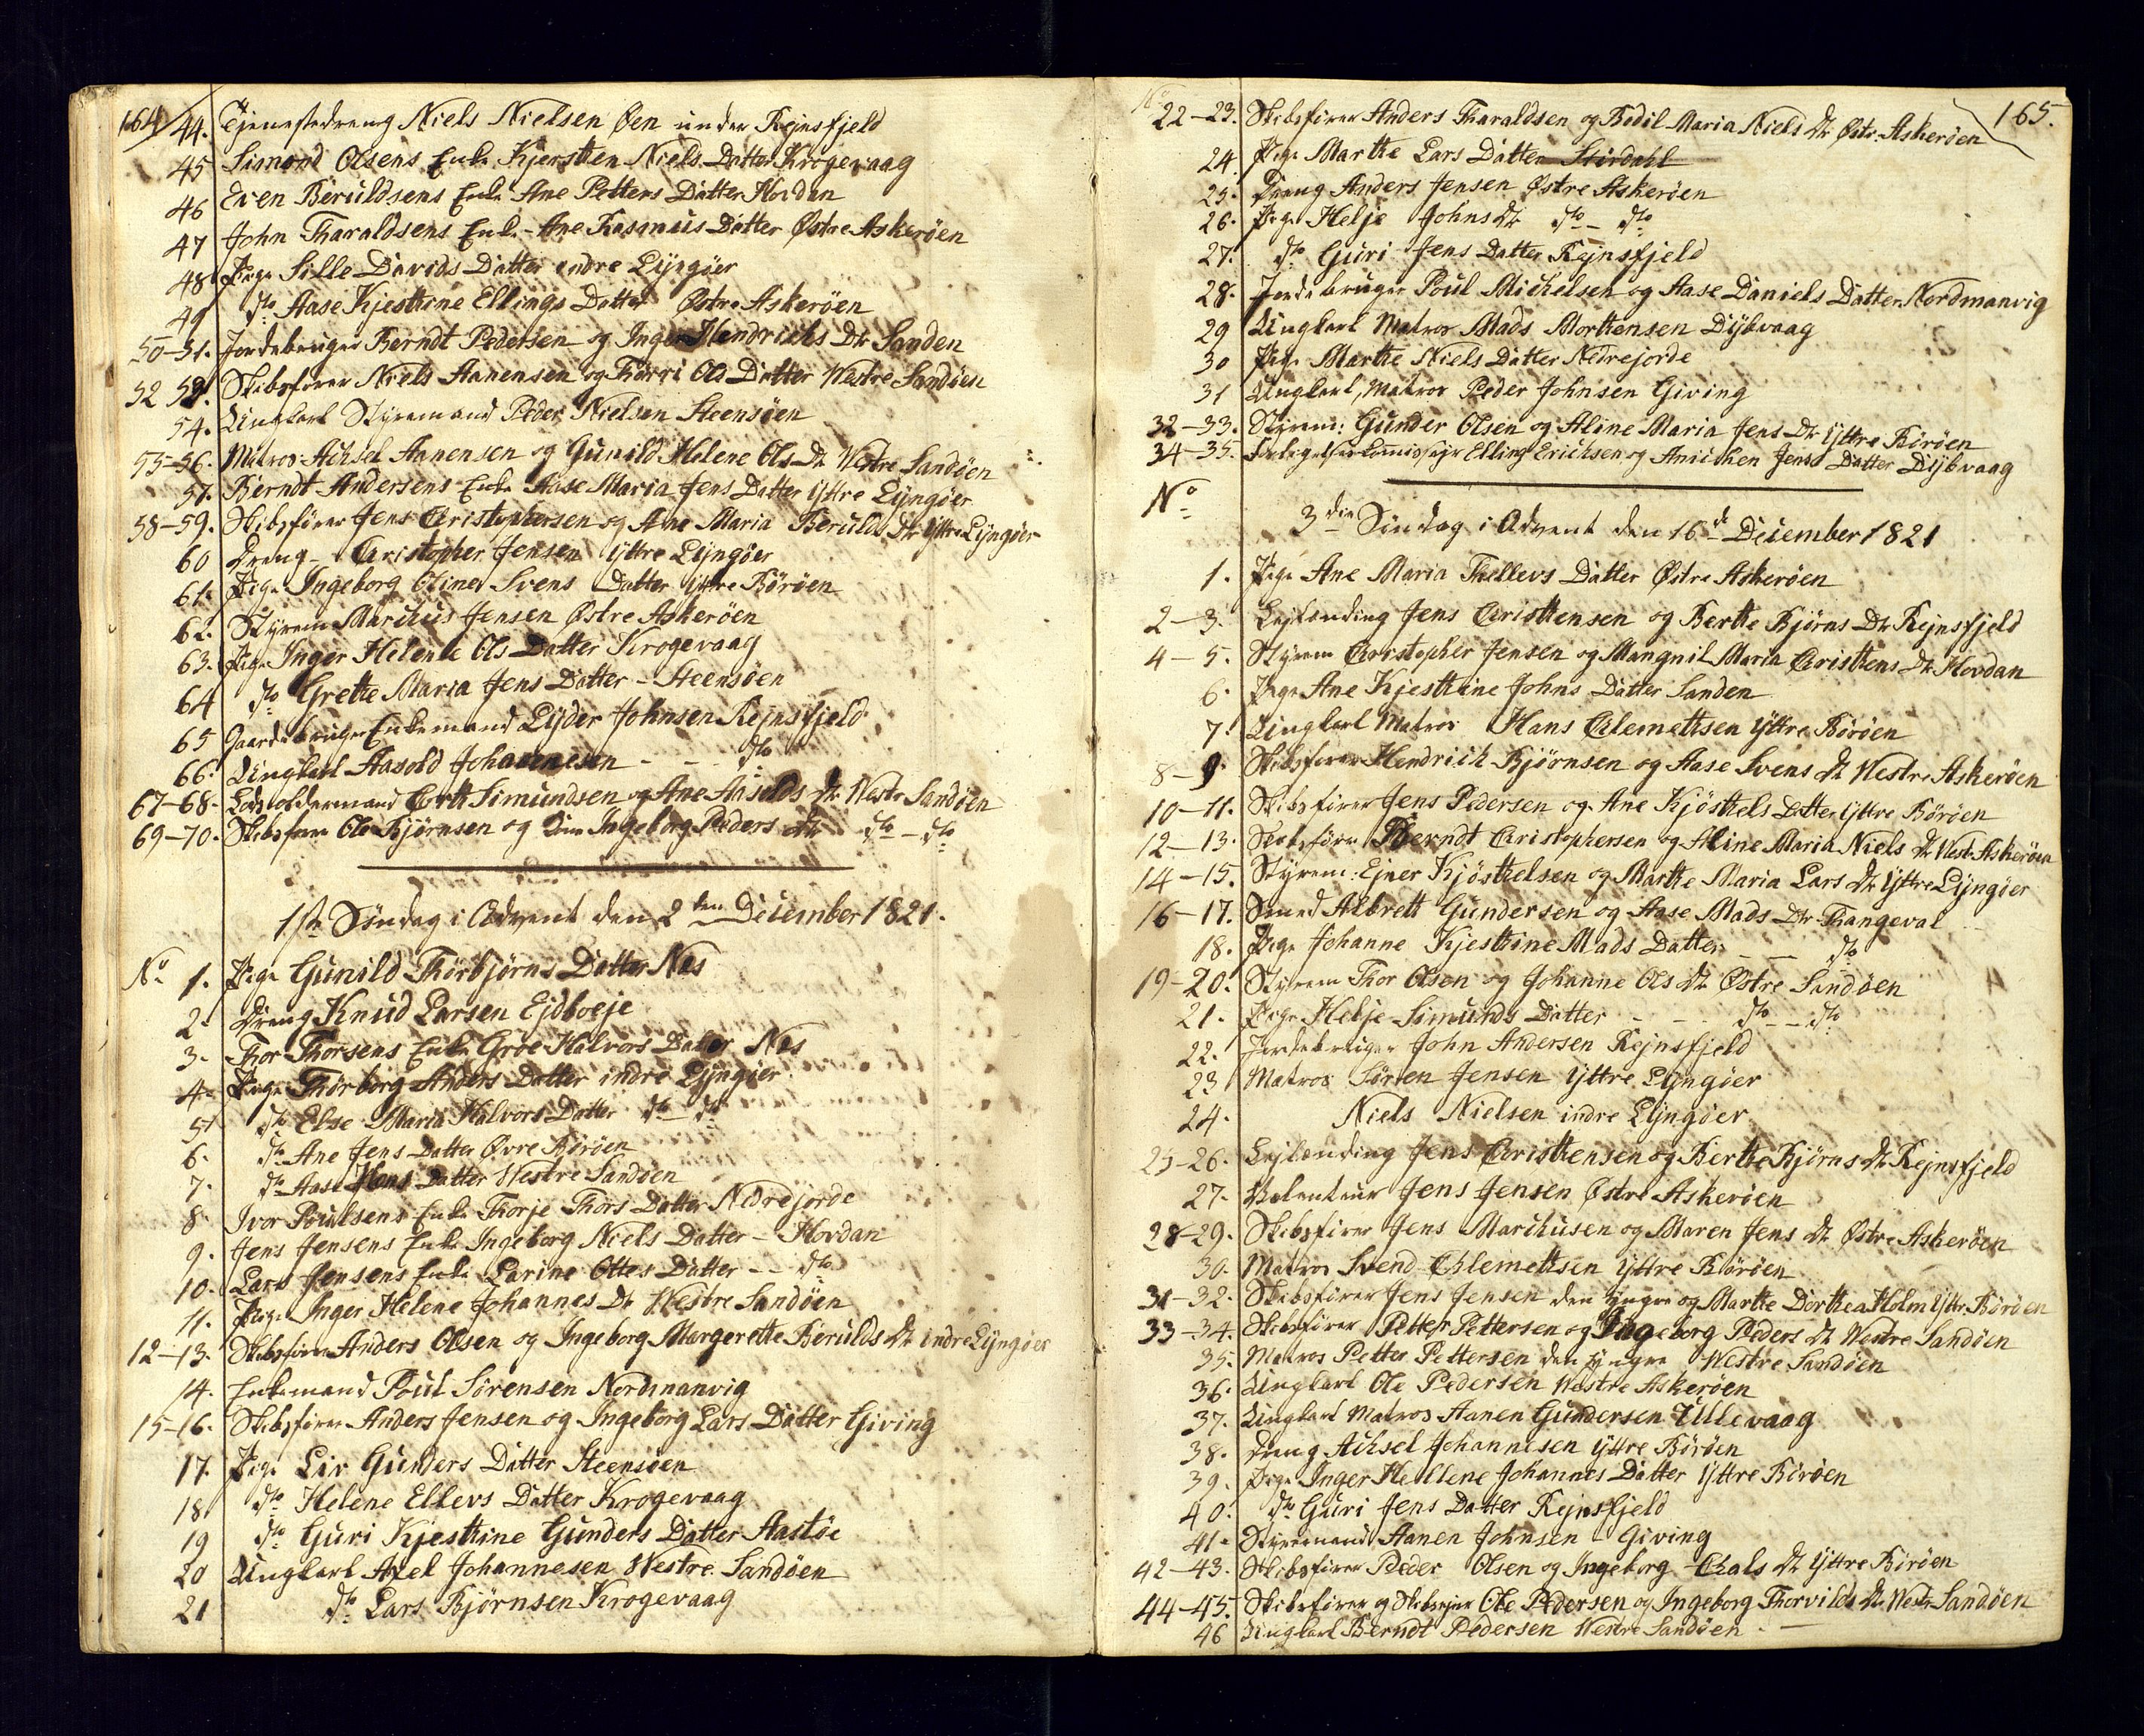 164
44. Tjenestedreng Niels Nielsen Øen under Rejnsfjeld
45 Simond Olsens Enke Kjersten Niels Datter Krogevaag
46 Even Beruldsens Enke Ane Petters Datter Hovdan
47 John Tharaldsens Enke Ane Rasmus Datter Østre Askerøen
48. Pige Sille Davids Datter indre Lyngøer
49 dto Aase Kjesthine Ellings Datter Østre Askerøen
50-51. Jordebruger Berndt Pedersen og Inger Hendrichs Dtr Sanden
52 53. Skibsfører Niels Aanensen og Thorri Ols Datter Westre Sandøen
54. Ungkarl Styremand Peder Nielsen Steensøen
55-56. Matros Achsel Aanensen og Gunild Helene Ols Dr Westre Sandøen
57. Berndt Andersens Enke Aase Maria Jens Datter Yttre Lyngøer
58-59. Skibsfører Jens Christophersen og Ane Maria Berulds Dtr Yttre Lyngøer
60 Dreng - Christopher Jensen Yttre Lyngøer
61. Pige Ingeborg Oline Svens Datter Yttre Børøen
62. Styrem Marchus Jensen Østre Askerøen
63. Pige Inger Helene Ols Datter Krogevaag
64 dto Grethe Maria Jens Datter - Steensøen
65 Gaardebruger Enkemand Lyder Johnsen Rejnsfjeld
66. Ungkarl Aasold Johannesen - - dto
67-68. Lodsoldermand Cort Simundsen og Ane Aasolds Dr Westr Sandøen
69-70. Skibsfører Ole Bjørnsen og Ingeborg Peders Dtr dto - dto
1ste Søndag i Advent den 2den December 1821.
No 1. Pige Gunild Thorbjørns Datter Næs
2. Dreng Knud Larsen Ejdboeje
3. Thor Thorsens Enke Groe Halvors Datter Næs
4. Pige Thorborg Anders Datter indre Lyngøer
5 dto Else Maria Halvors Datter dto - dto
6. dto Ane Jens Datter Øvre Børøen
7. dto Aase Hans Datter Westre Sandøen
8. Ivor Poulsens Enke Thorje Thors Datter Nedrejorde
9. Jens Jensens Enke Ingeborg Niels Datter - Hovdan
10. Lars Jensens Enke Larine Ottes Datter -- dto
11. Pige Inger Helene Johannes Dr Westre Sandøen
12-13. Skibsfører Anders Olsen og Ingeborg Margerethe Berulds Dr indre Lyngøer
14. Enkemand Poul Sørensen Nordmanvig
15-16. Skibsfører Anders Jensen og Ingeborg Lars Datter Giving
17. Pige Liv Gunders Datter Steensøen
18 dto Helene Ellevs Datter Krogevaag
19 dto Guri Kjesthine Gunders Datter Aastøe
20 Ungkarl Axel Johannesen Westre Sandøen
21 dto Lars Bjørnsen Krogevaag
165.
No
22-23. Skibsfører Anders Tharaldsen og Bodil Maria Niels Dr Østr. Askerøen
24. Pige Marthe Lars Datter Stirdahl
25. Dreng Anders Jensen Østre Askerøen
26. Pige Helje Johns Dr dto - dto
27. dto Guri Jens Datter Rejnsfjeld
28. Jordebruger Poul Michelsen og Aase Daniels Datter Nordmanvig
29 Ungkarl Matros Mads Morthensen Dybvaag
30 Pige Marthe Niels Datter Nedrejorde
31 Ungkarl, Matros Peder Johnsen Giving
32-33. Styrem: Gunder Olsen og Aline Maria Jens Dr Yttre Børøen
34-35. Elling Erichsen og Anichen Jens Datter Dybvaag
No
3die Søndag i Advent den 16de December 1821
1. Pige Ane Maria Thellevs Datter Østre Askerøen
2-3. Lejlænding Jens Christhensen og Berthe Bjørns Dtr Rejnsfjeld
4-5. Styrem Christopher Jensen og Mangnil Maria Christhens Dr Hovdan
6. Pige Ane Kjesthine Johns Datter Sanden
7. Ungkarl Matros Hans Chlemethsen Yttre Børøen
8-9. Skibsfører Hendrich Bjørnsen og Aase Svens Dr Westre Askerøen
10-11. Skibsfører Jens Pedersen og Ane Kjøsthels Datter Yttre Børøen
12-13. Skibsfører Berndt Christophersen og Aline Maria Niels Dr West. Askerøen
14-15. Styrem: Ejner Kjøsthelsen og Marthe Maria Lars Dr Yttre Lyngøer
16-17. Smed Albrett Gundersen og Aase Mads Dtr Thangeval
18. Pige Johanne Kjesthine Mads Datter - - dto
19-20. Styrem Thor Olsen og Johanne Ols Dr Østre Sandøen
21. Pige Helje Simunds Datter - - - dto - dto
22. Jordebruger John Andersen Rejnsfjeld
23 Matros Søren Jensen Yttre Lyngøer
24. Niels Nielsen indre Lyngøer
25-26. Lejlænding Jens Christhensen og Berthe Bjørns Dr Rejnsfjeld
27. Volenteur Jens Jensen Østre Askerøen
28-29. Skibsfører Jens Marchusen og Maren Jens Dr Østre Askerøen
30. Matros Svend Chlemethsen Yttre Børøen
31-32. Skibsfører Jens Jensen den yngre og Marthe Dorthea Holm Yttr. Børøen
33-34. Skibsfører Petter Pettersen og Ingeborg Peders Dr Westre Sandøen
35. Matros Petter Pettersen den yngre Westre Sandøen
36. Ungkarl Ole Pedersen Westre Askerøen
37. Ungkarl Matros Aanen Gundersen Ullevaag
38. Dreng Achsel Johannesen Yttre Børøen
39. Pige Inger Hellene Johannes Datter Yttre Børøen
40. dto Guri Jens Datter Rejnsfjeld
41. Styremand Aanen Johnsen - Giving
42-43. Skibsfører Peder Olsen og Ingeborg Chals Dr Yttre Børøen
44-45. Skibsfører og Skibsejer Ole Pedersen og Ingeborg Thorvilds Dr Westr Sandøen
46 Ungkarl Berndt Pedersen Westre Sandøen